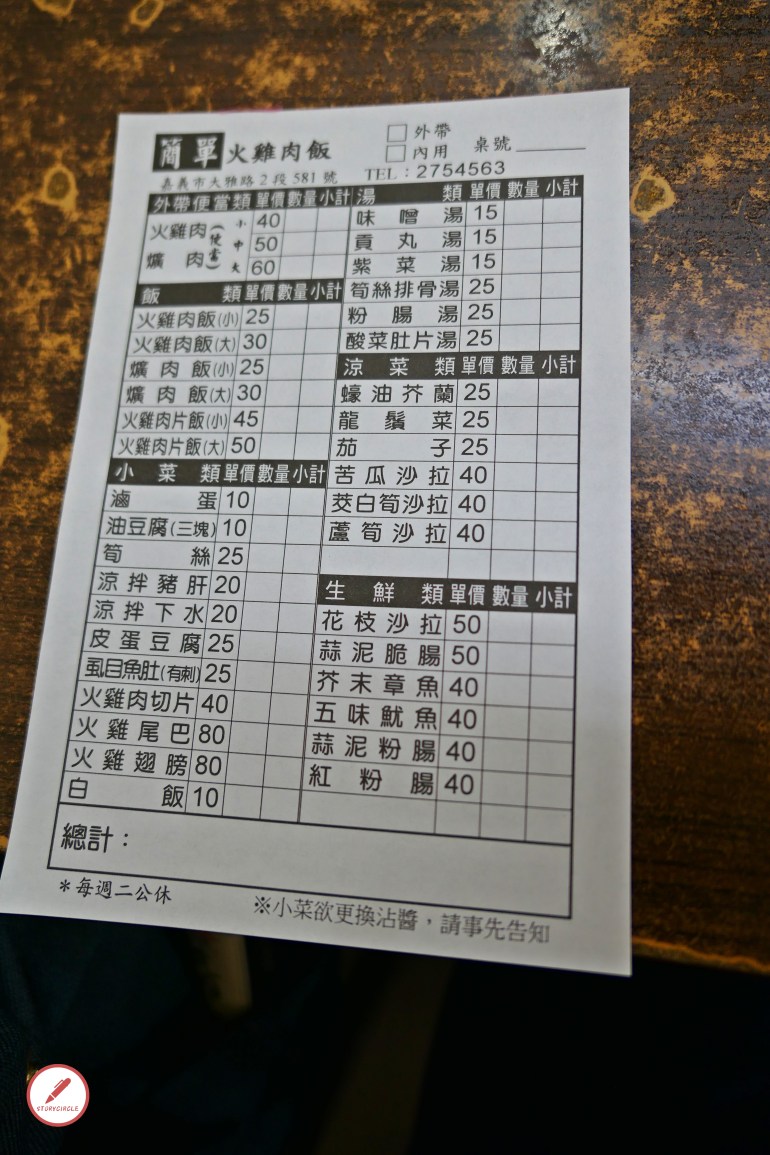 簡單火雞肉飯
□外帶
□內用 桌號
嘉義市大雅路2段581號 TEL：2754563
外帶便當類 單價 數量 小計
火雞肉(便當) 小 40
爌肉 中 50
大 60
飯類 單價 數量 小計
火雞肉飯(小) 25
火雞肉飯(大) 30
爌肉飯(小) 25
爌肉飯(大) 30
火雞肉片飯(小) 45
火雞肉片飯(大) 50
小菜類 單價 數量 小計
滷蛋 10
油豆腐(三塊) 10
筍絲 25
涼拌豬肝 20
涼拌下水 20
皮蛋豆腐 25
虱目魚肚(有刺) 25
火雞肉切片 40
火雞尾巴 80
火雞翅膀 80
白飯 10
湯類 單價 數量 小計
味噌湯 15
貢丸湯 15
紫菜湯 15
筍絲排骨湯 25
粉腸湯 25
酸菜肚片湯 25
涼菜類 單價 數量 小計
蠔油芥蘭 25
龍鬚菜 25
茄子 25
苦瓜沙拉 40
茭白筍沙拉 40
蘆筍沙拉 40
生鮮類 單價 數量 小計
花枝沙拉 50
蒜泥脆腸 50
芥末章魚 40
五味魷魚 40
蒜泥粉腸 40
紅粉腸 40
總計：
＊每週二公休
※小菜欲更換沾醬，請事先告知
STORYCIRCLE